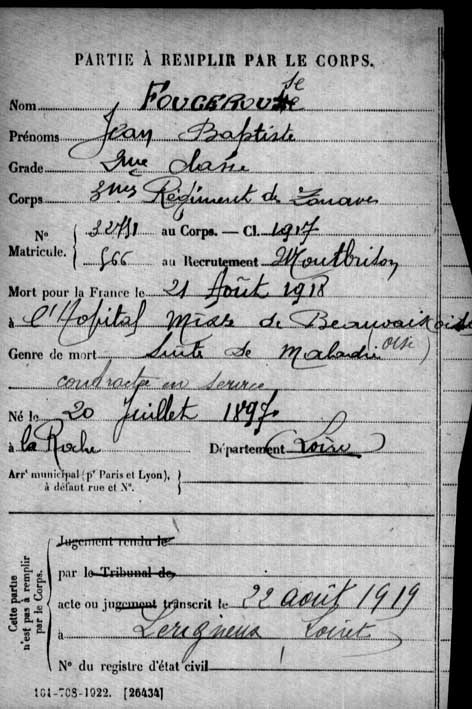 PARTIE À REMPLIR PAR LE CORPS.
Nom FOUGEROUSE
Prénoms Jean Baptiste
Grade 2me classe
Corps 3mes Régiment de Zouaves
N° Matricule. { 32731 au Corps. — Cl. 1917
566 au Recrutement Montbrison
Mort pour la France le 21 Août 1918
à l'Hopital Mixte de Beauvais (Oise)
Genre de mort Suite de Maladie
contractée en service
Né le 20 Juillet 1897
à la Roche Département Loire
Arrt municipal (pr Paris et Lyon), }
à défaut rue et N°.
Cette partie n'est pas à remplir par le Corps.
Jugement rendu le
par le Tribunal de
acte ou jugement transcrit le 22 août 1919
à Lerigneux Loiret
N° du registre d'état civil
101-708-1922. [26434]